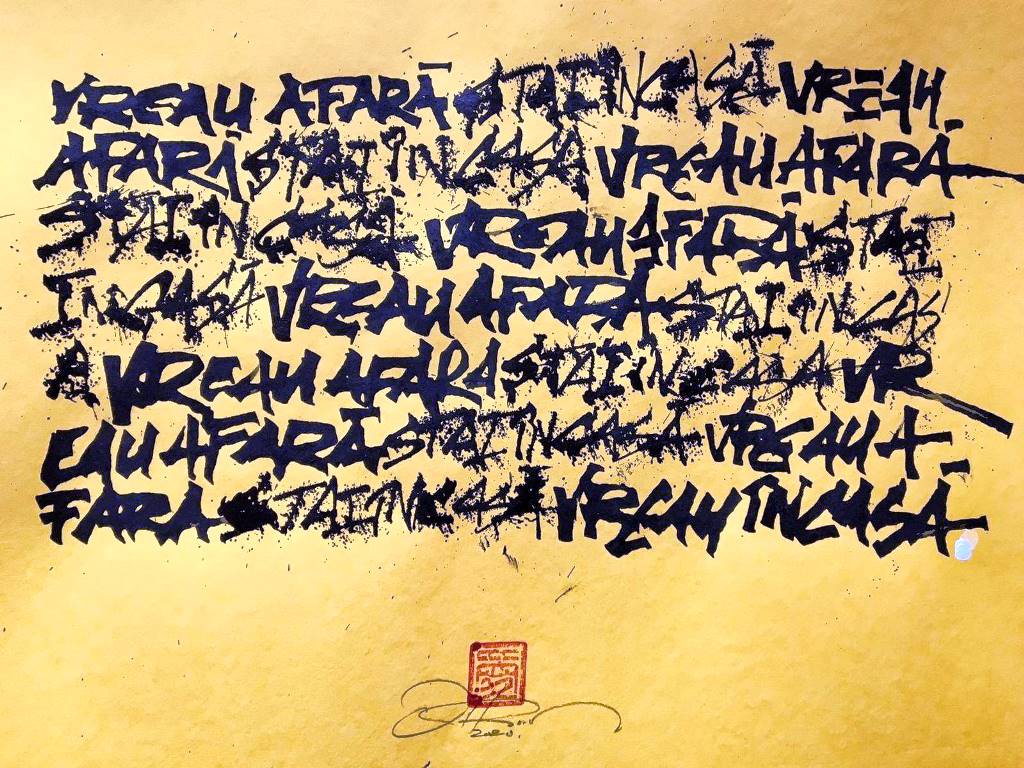 VREAU AFARĂ STAI IN CASĂ VREAU
AFARĂ STAI ÎN CASĂ VREAU AFARĂ
STAI IN CASĂ VREAU AFARĂ STAI
IN CASĂ VREAU AFARĂ STAI IN CAS
Ă VREAU AFARA STAI IN CASA VR
EAU AFARĂ STAI ÎN CASĂ VREAU A-
FARA STAI IN CASĂ VREAU ÎN CASĂ
2020.